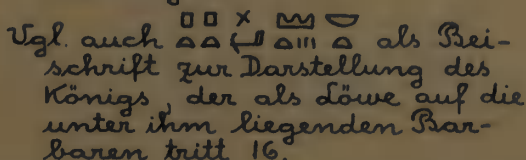 Vgl. auch 𓊪𓏏𓊪𓏏𓏴 𓈉𓏏𓏥𓎟𓏏 als Bei-
schrift zur Darstellung des
Königs, der als Löwe auf die
unter ihm liegenden Bar-
baren tritt 16.